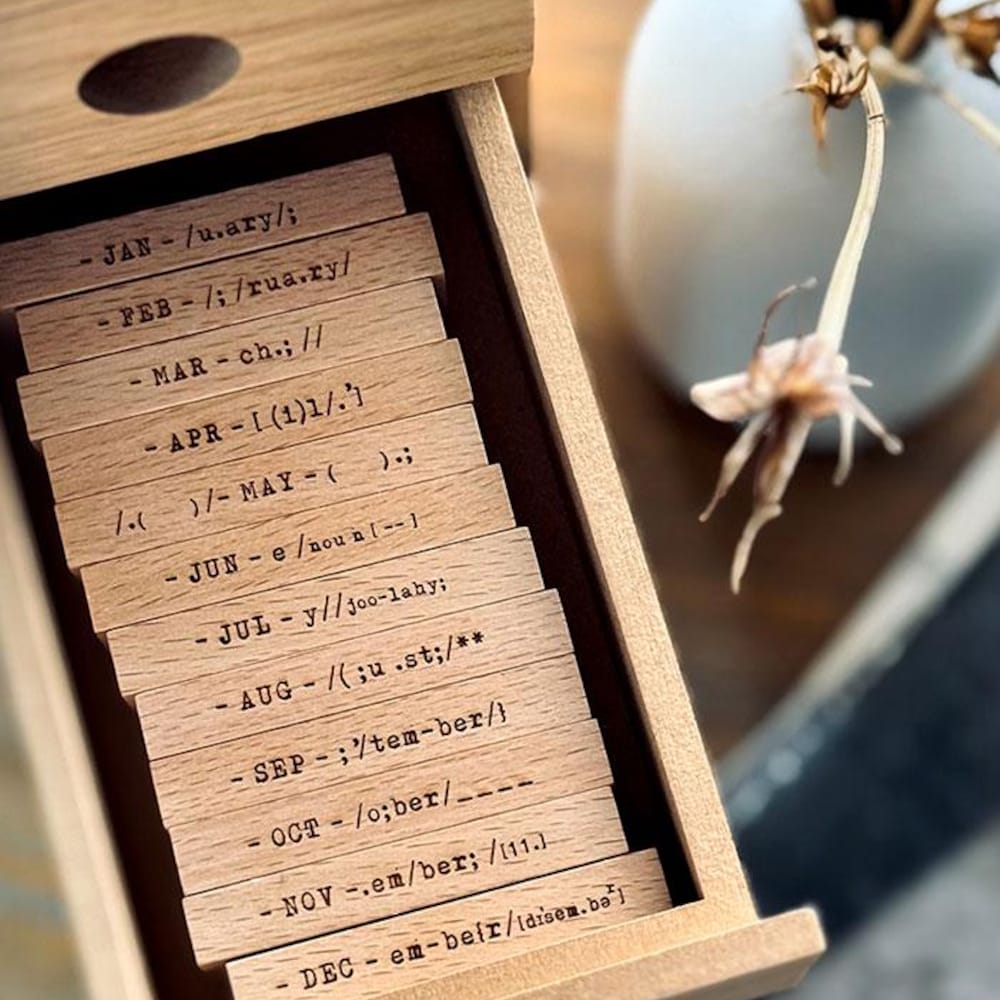 - JAN - /u.ary/;
- FEB - /; /rua.ry/
- MAR - ch.; //
- APR - [(1)1/.']
/.( )/- MAY - ( ).;
- JUN - e /noun[--]
- JUL - y//joo-lahy;
- AUG - /( ;u .st;/**
- SEP - ;'/tem-ber/}
- OCT - /o;ber/____
- NOV -.em/ber; /[11.]
- DEC - em-be{r/[disem.bəʳ]